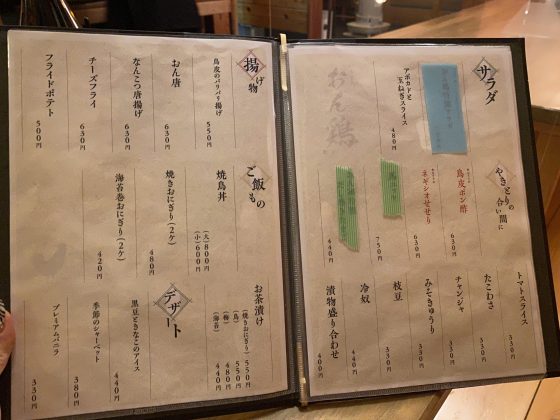 サラダ
アボカドと
玉ねぎスライス
480円
やきとりの
合い間に
鳥皮ポン酢
630円
ネギシオせせり
630円
750円
440円
トマトスライス
330円
たこわさ
330円
チャンジャ
330円
みそきゅうり
330円
枝豆
330円
冷奴
400円
漬物盛り合わせ
400円
揚げ物
鳥皮のパリパリ揚げ
550円
おん唐
630円
なんこつ唐揚げ
630円
チーズフライ
630円
フライドポテト
500円
ご飯もの
焼鳥丼
(大)800円
(小)600円
焼きおにぎり(2ケ)
480円
海苔巻おにぎり(2ケ)
420円
お茶漬け
(焼きおにぎり)550円
(鳥)550円
(梅)480円
(海苔)440円
デザート
黒豆ときなこのアイス
440円
季節のシャーベット
380円
プレミアムバニラ
330円